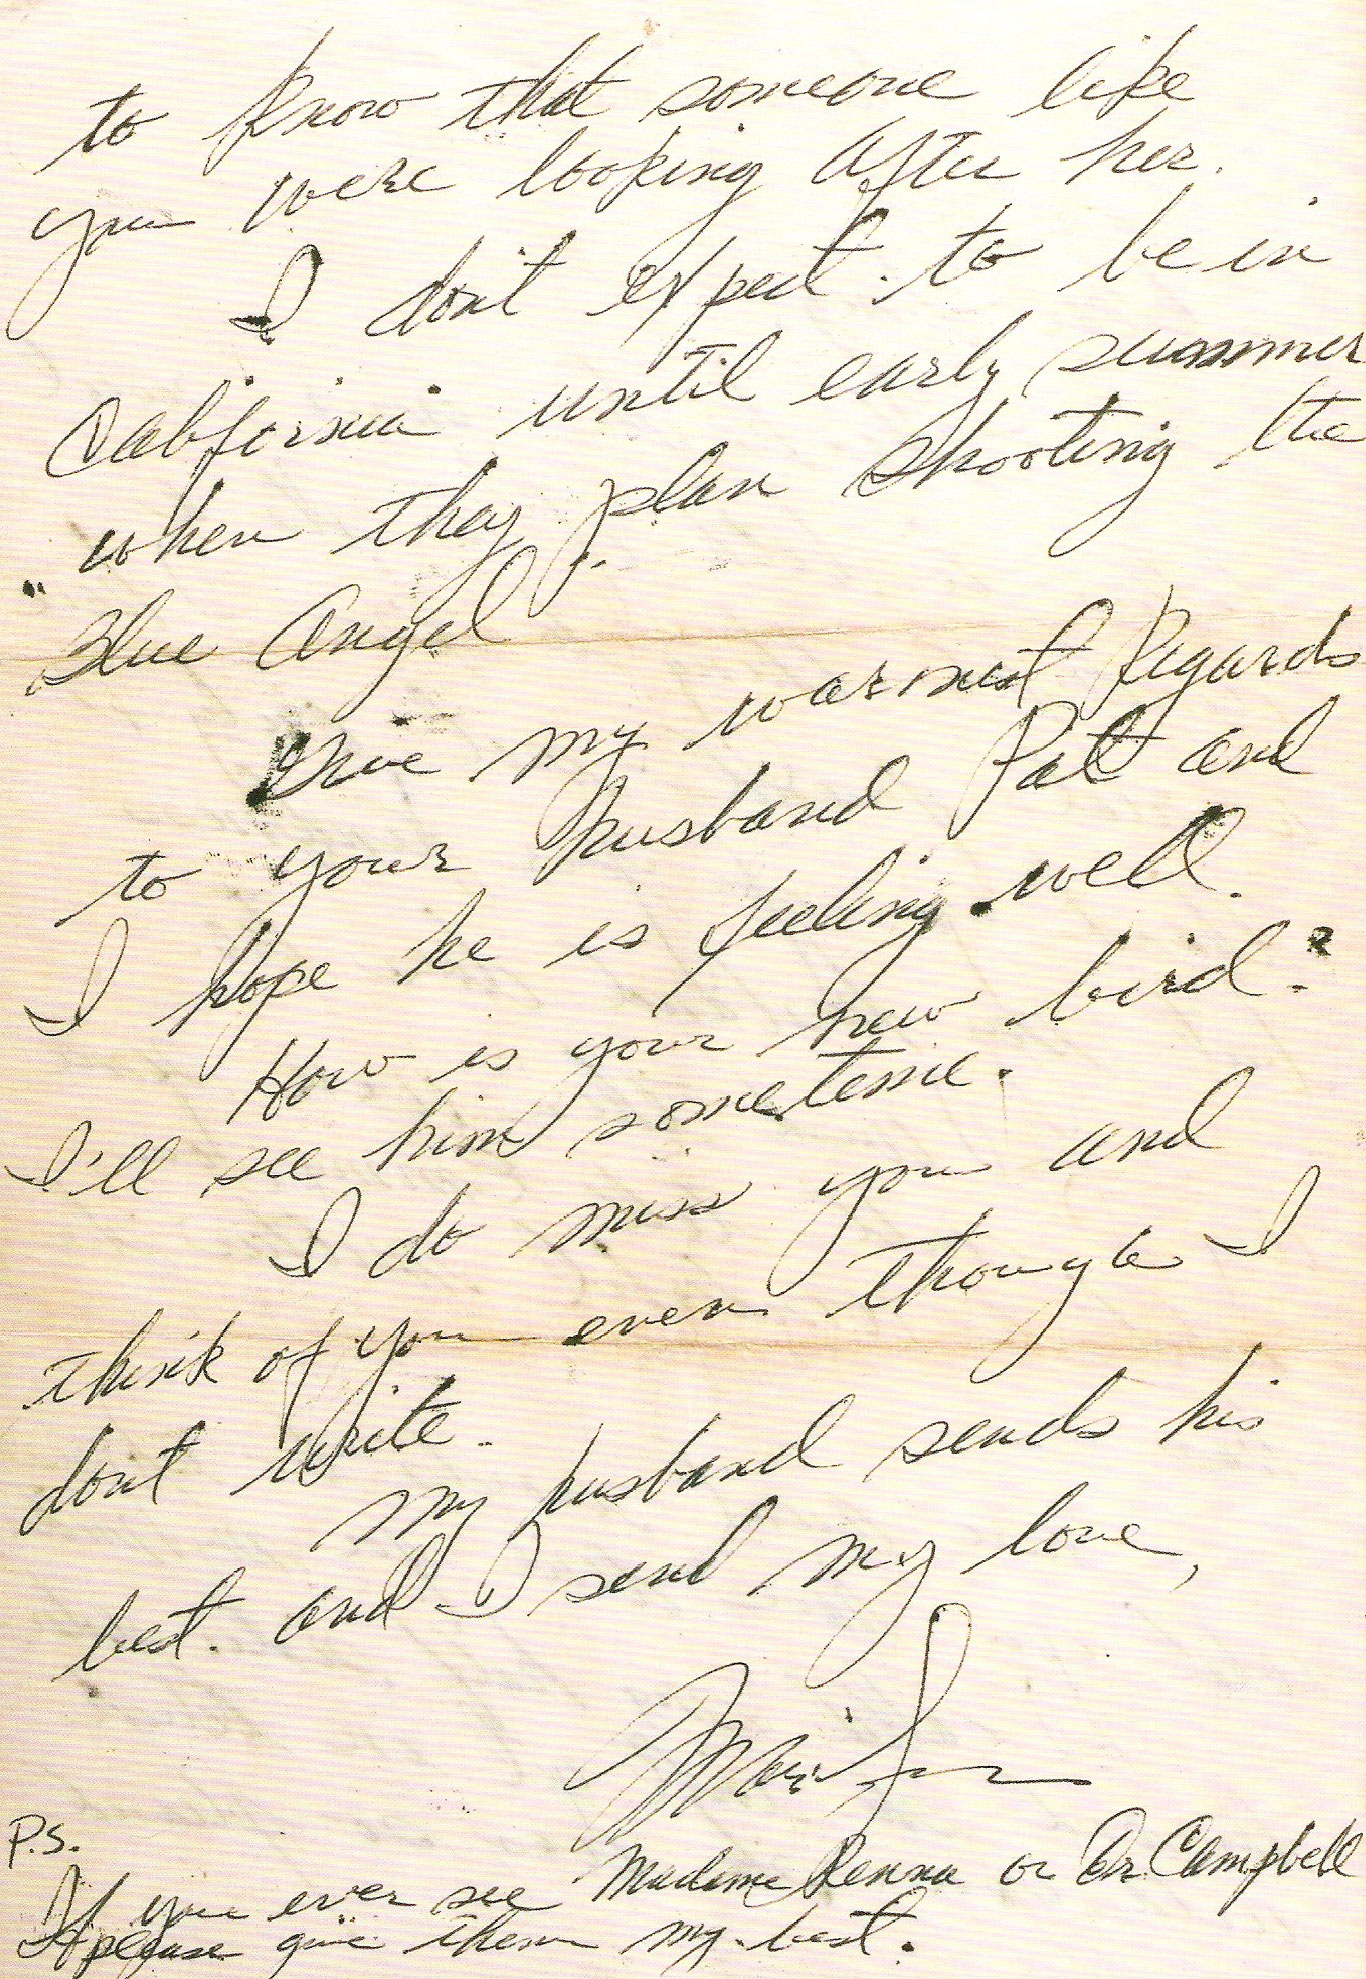 to know that someone like
you were looking after her.
I don't expect to be in
California until early summer
when they plan shooting the
"Blue Angel
Give my warmest Regards
to your husband Pat and
I hope he is feeling well.
How is your new bird?
I'll see him sometime.
I do miss you and
think of you even though I
don't write.
My husband sends his
best. and I send my love,
Marilyn
P.S.
If you ever see Madame Renna or Dr Campbell
please give them my best.